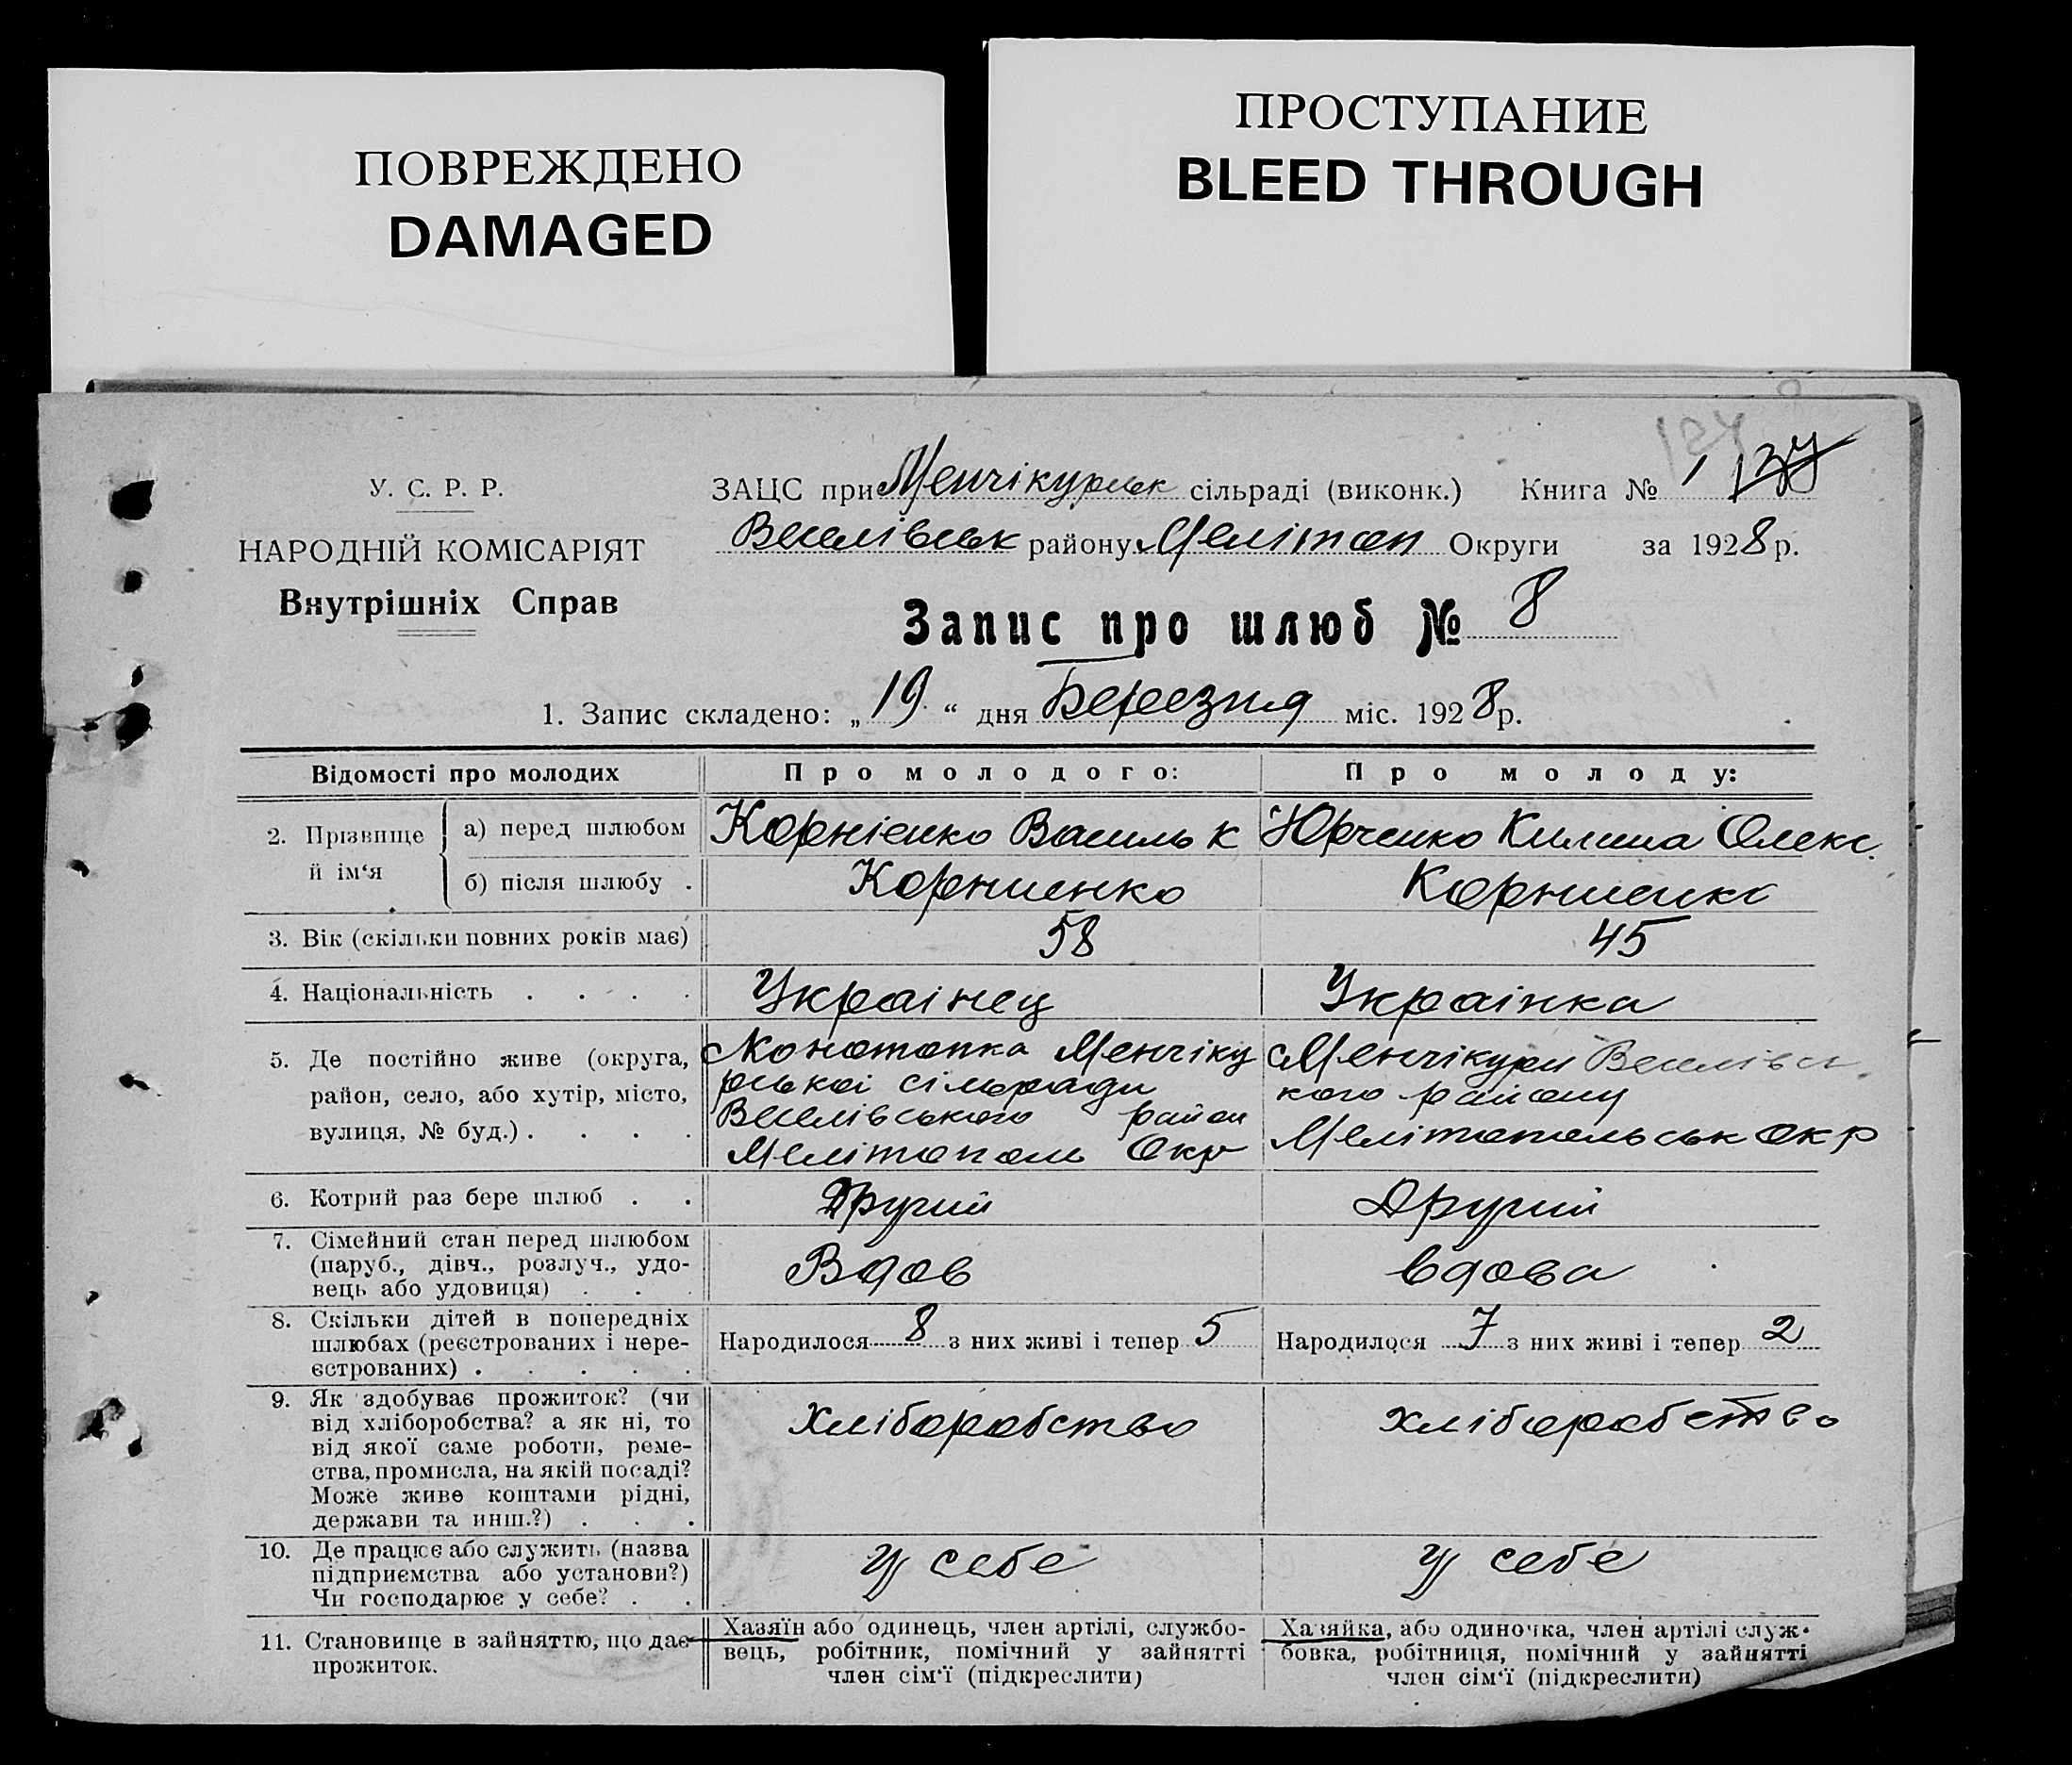 ПОВРЕЖДЕНО
DAMAGED
ПРОСТУПАНИЕ
BLEED THROUGH
У. С. Р. Р.
НАРОДНІЙ КОМІСАРІЯТ
Внутрішніх Справ
124
ЗАЦС при Менчікурськ сільраді (виконк.) Книга № 1
Веселівськ району Меліт. Округи за 1928 р.
Запис про шлюб № 8
1. Запис складено: „ 19 “ дня Березня міс. 1928 р.
Відомості про молодих
Про молодого:
Про молоду:
2. Прізвище й ім‘я
а) перед шлюбом
Корніенко Василь К
Юрченко Килина Олекс.
б) після шлюбу .
Корниенко
Корниенко
3. Вік (скільки повних років має)
58
45
4. Національність . . . .
Украінец
Украінка
5. Де постійно живе (округа,
район, село, або хутір, місто,
вулиця, № буд.) . . . .
Менчіку
рськоі сільради
Веселівського район
Мелітополь Окр
Менчікури Веселівсь
кого району
Мелітопольськ окр
6. Котрий раз бере шлюб . .
Другий
Другий
7. Сімейний стан перед шлюбом
(паруб., дівч., розлуч., удо-
вець або удовиця) . . .
Вдов
вдова
8. Скільки дітей в попередніх
шлюбах (реєстрованих і нере-
єстрованих) . . . . .
Народилося 8 з них живі і тепер 5
Народилося 7 з них живі і тепер 2
9. Як здобуває прожиток? (чи
від хліборобства? а як ні, то
від якої саме роботи, реме-
ства, промисла, на якій посаді?
Може живе коштами рідні,
держави та инш.?) . . .
Хліборобство
хліборобство
10. Де працює або служить (назва
підприємства або установи?)
Чи господарює у себе? . .
У себе
У себе
11. Становище в зайняттю, що дає
прожиток.
Хазяїн або одинець, член артілі, службо-
вець, робітник, помічний у зайнятті
член сім‘ї (підкреслити)
Хазяйка, або одиночка, член артілі служ-
бовка, робітниця, помічний у зайнятті
член сім‘ї (підкреслити)